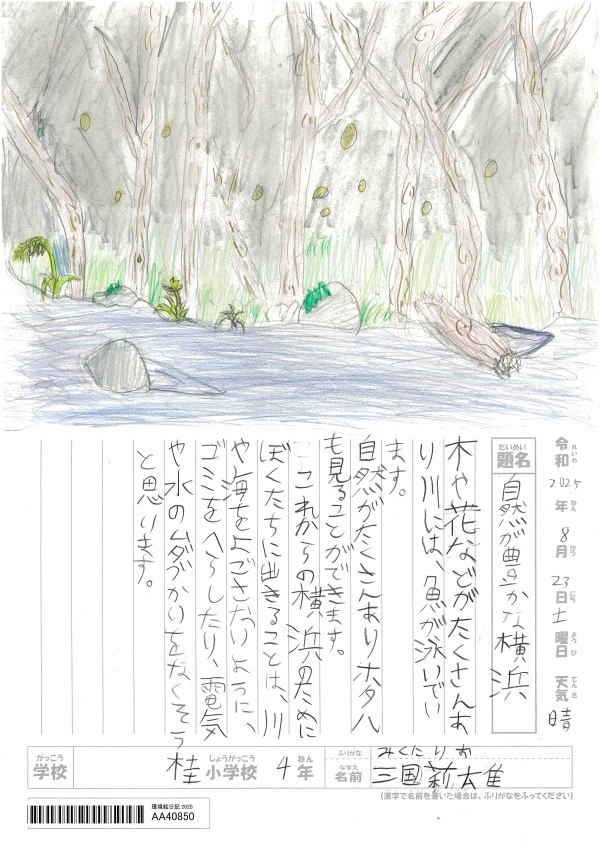 令和 2025年 8月 23日 土曜日 天気 晴
れいわ ねん がつ にち ようび てんき
だいめい
題名 自然が豊かな横浜
木や花などがたくさんあ
り川には、魚が泳いでい
ます。
自然がたくさんありホタル
も見ることができます。
これからの横浜のために
ぼくたちに出きることは、川
や海をよごさないように、
ゴミをへらしたり、電気
や水のムダづかいをなくそう
と思います。
がっこう しょうがっこう ねん
学校 桂小学校 4年
ふりがな みくに りお
なまえ
名前 三国莉
(漢字で名前を書いた場合は、ふりがなをふってください)
環境絵日記2025
AA40850